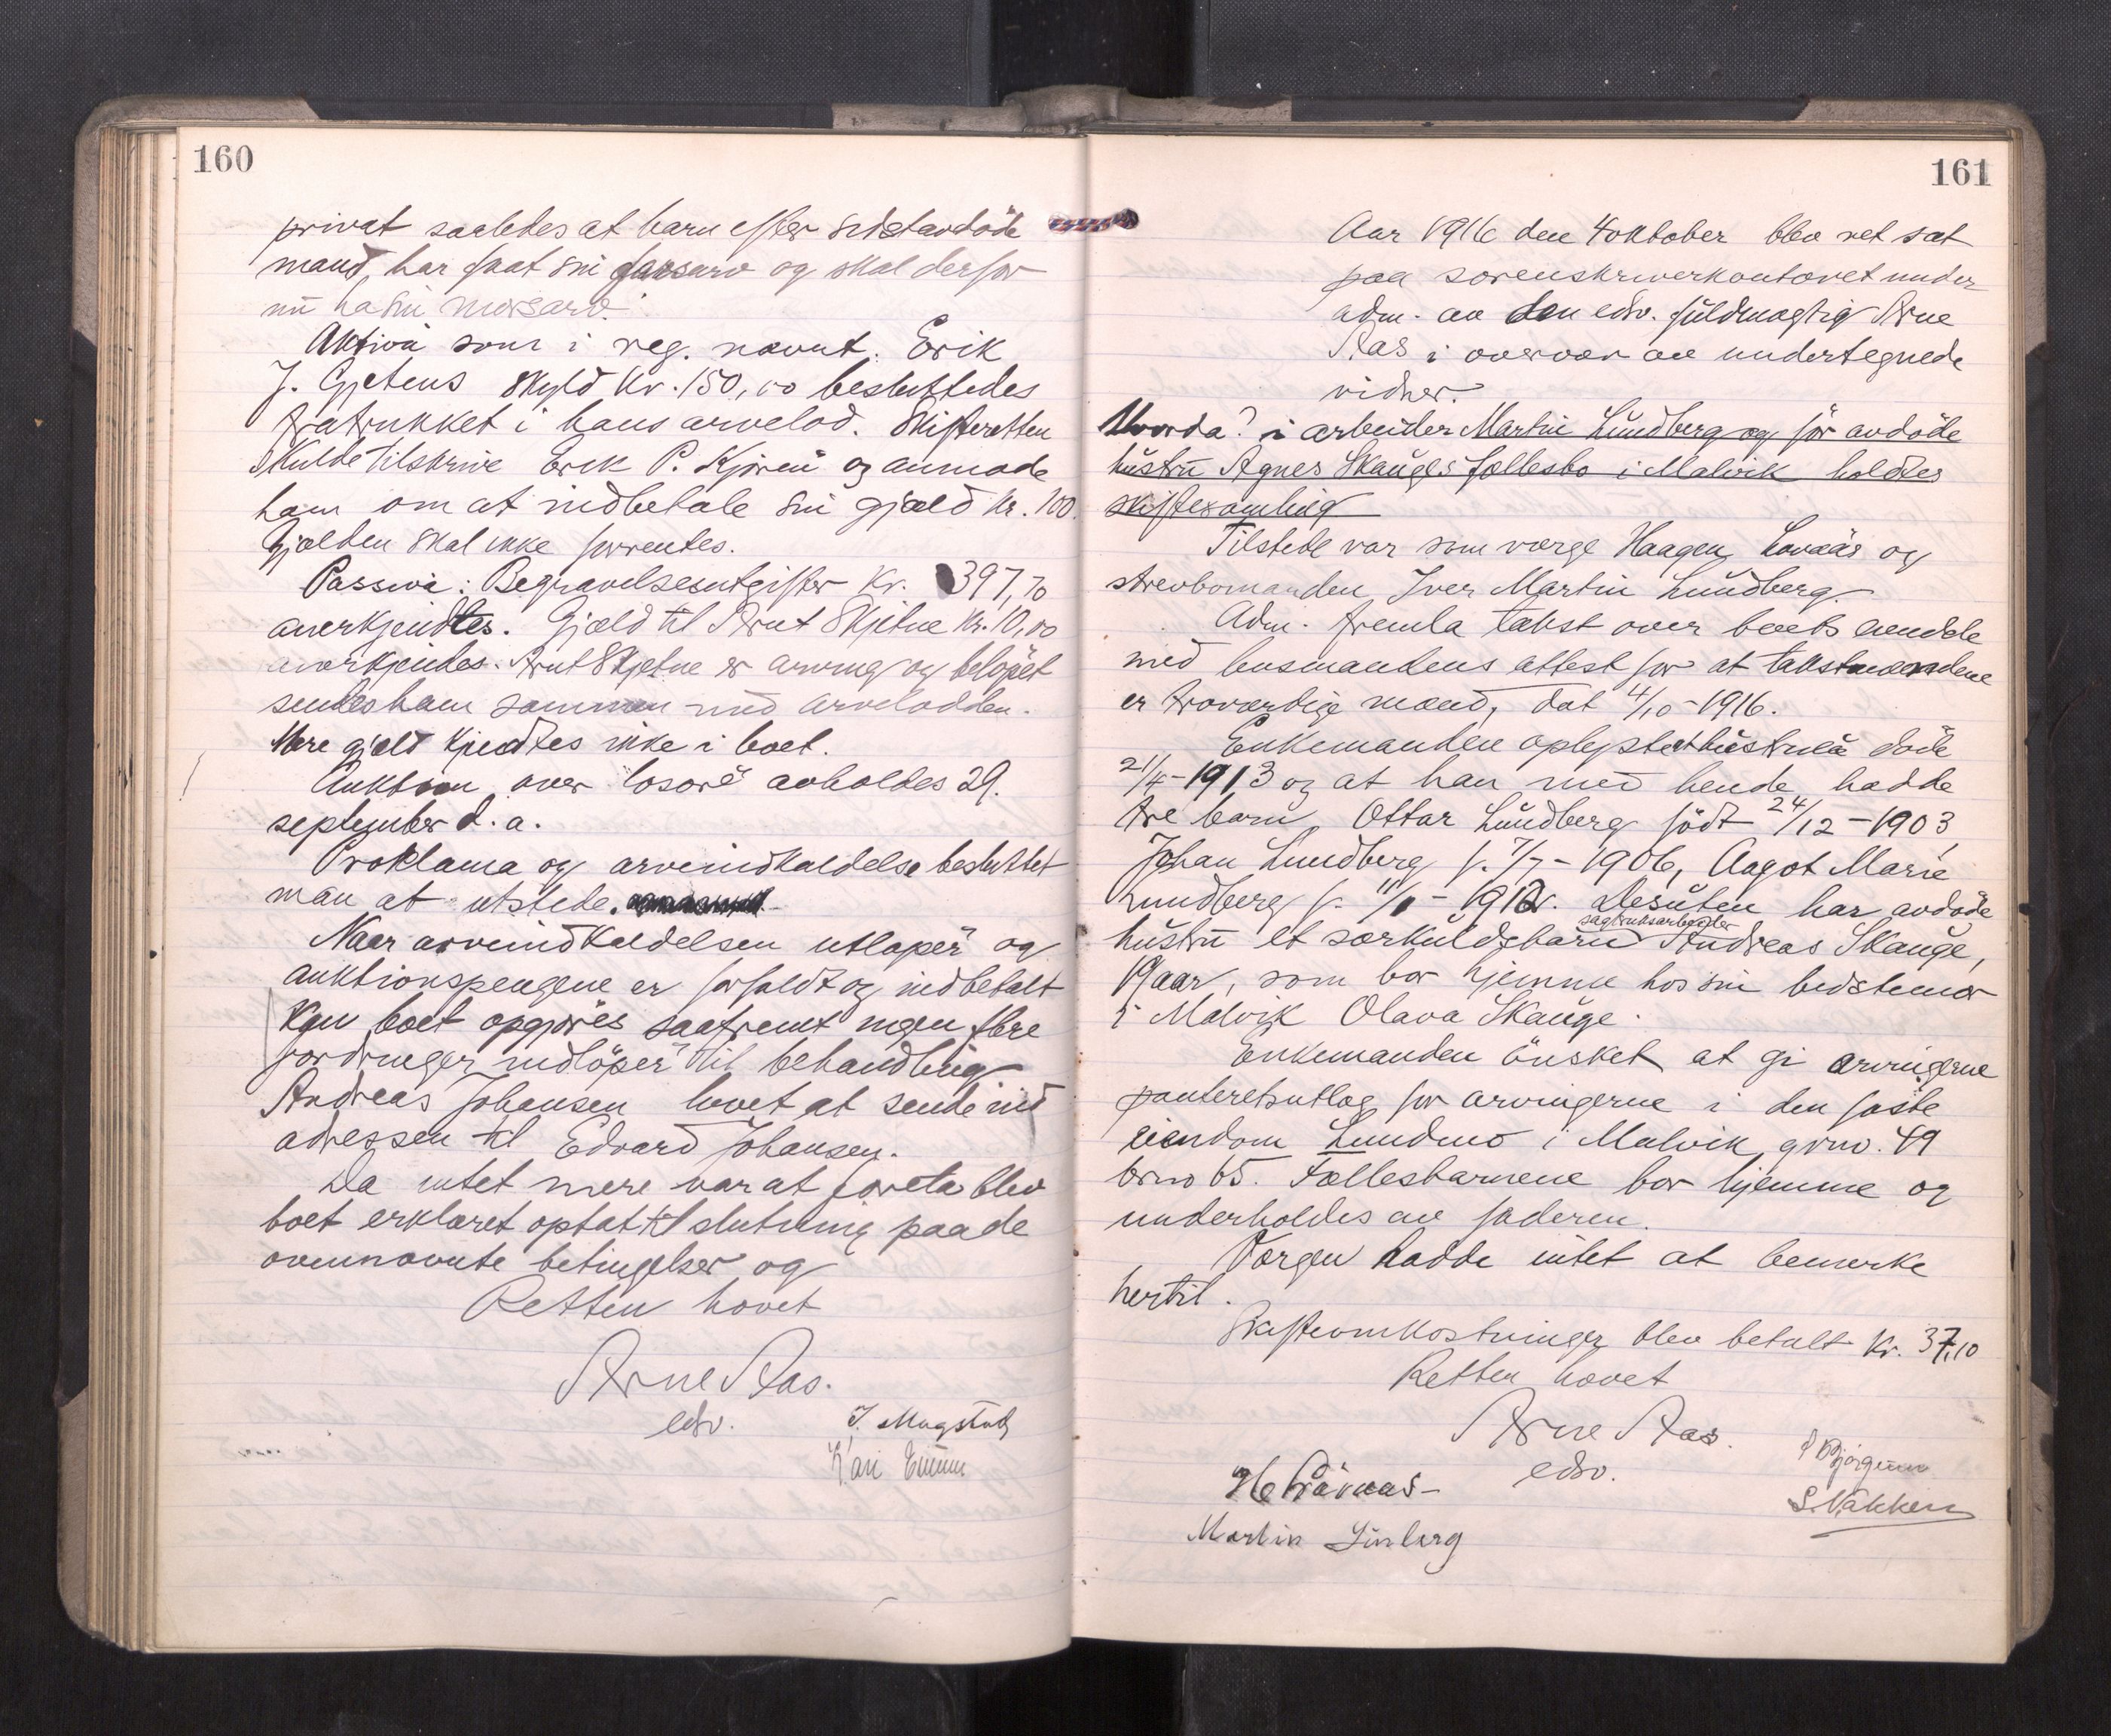 160
privat saaledes at barn efter sidstavdöde
mand, har faat sin farsarv og skal derfor
nu ha sin morsarv.
Aktiva som i reg. nævnt. Erik
J. Gjetens skyld kr. 150,00 besluttedes
fratrukket i hans arvelod. Skifteretten
skulde tilskrive Erik P. og anmode
ham om at indbetale sin gjæld kr. 100.
Gjælden skal ikke forrentes.
Passiva: Begravelsesutgifter kr. 397,70
anerkjendtes. Gjæld til Arnt Skjetne kr. 10,00
anerkjendes. Arnt Skjetne er arving og beløpet
sendes ham sammen med arvelodden.
Mere gjæld kjendtes ikke i boet.
Auktion over løsøre avholdes 29.
september d. a.
Proklama og arveindkaldelse besluttet
man at utstede.
Naar arveindkaldelsen utløper og
auktionspengene er forfaldt og indbetalt
kan boet opgjöres saafremt ingen flere
fordringer indlöper til behandling
Andreas Johansen lovet at sende ind
adressen til Edvard Johansen.
Da intet mere var at foreta blev
boet erklæret optat til slutning paa de
ovennævnte betingelser og
Retten hævet
Arne Aas.
edsv.
J. Mugstad
Kari
161
Aar 1916 den 4 oktober blev ret sat
paa sorenskriverkontoret under
adm. av den edsv. fuldmægtig Arne
Aas i overvær av undertegnede
vidner.
Hvorda? i arbeider Martin Lundberg og för avdöde
hustru Agnes Skauges fællesbo i Malvik holdtes
skiftesamling
Tilstede var som verge Haagen og
strevbomanden Iver Martin Lundberg.
Adm. fremla takst over boets eiendele
med lensmandens attest for at takstmændene
er troværdige mænd, dat 4/10-1916.
Enkemanden oplyste at hustruen döde
21/4-1913 og at han med hende hadde
tre barn, Ottar Lundberg födt 24/12-1903,
Johan Lundberg f. 7/7-1906, Aagot Marie
Lundberg f. 11/1-1912. Desuten har avdöde
sagbruksarbeider
hustru et særkuldsbarn Andreas Skauge,
19 aar, som bor hjemme hos sin bedstemor
i Malvik Olava Skauge.
Enkemanden önsket at gi arvingerne
panteretsutlæg for arvingerne i den faste
eiendom Lundmo i Malvik gvno. 49
brno 65. Fællesbarnene bor hjemme og
underholdes av faderen.
Værgen hadde intet at bemerke
hertil.
Skifteomkostninger blev betalt kr. 37,10
Retten hævet
Arne Aas.
edsv.
S. Nakken
Martin Linberg